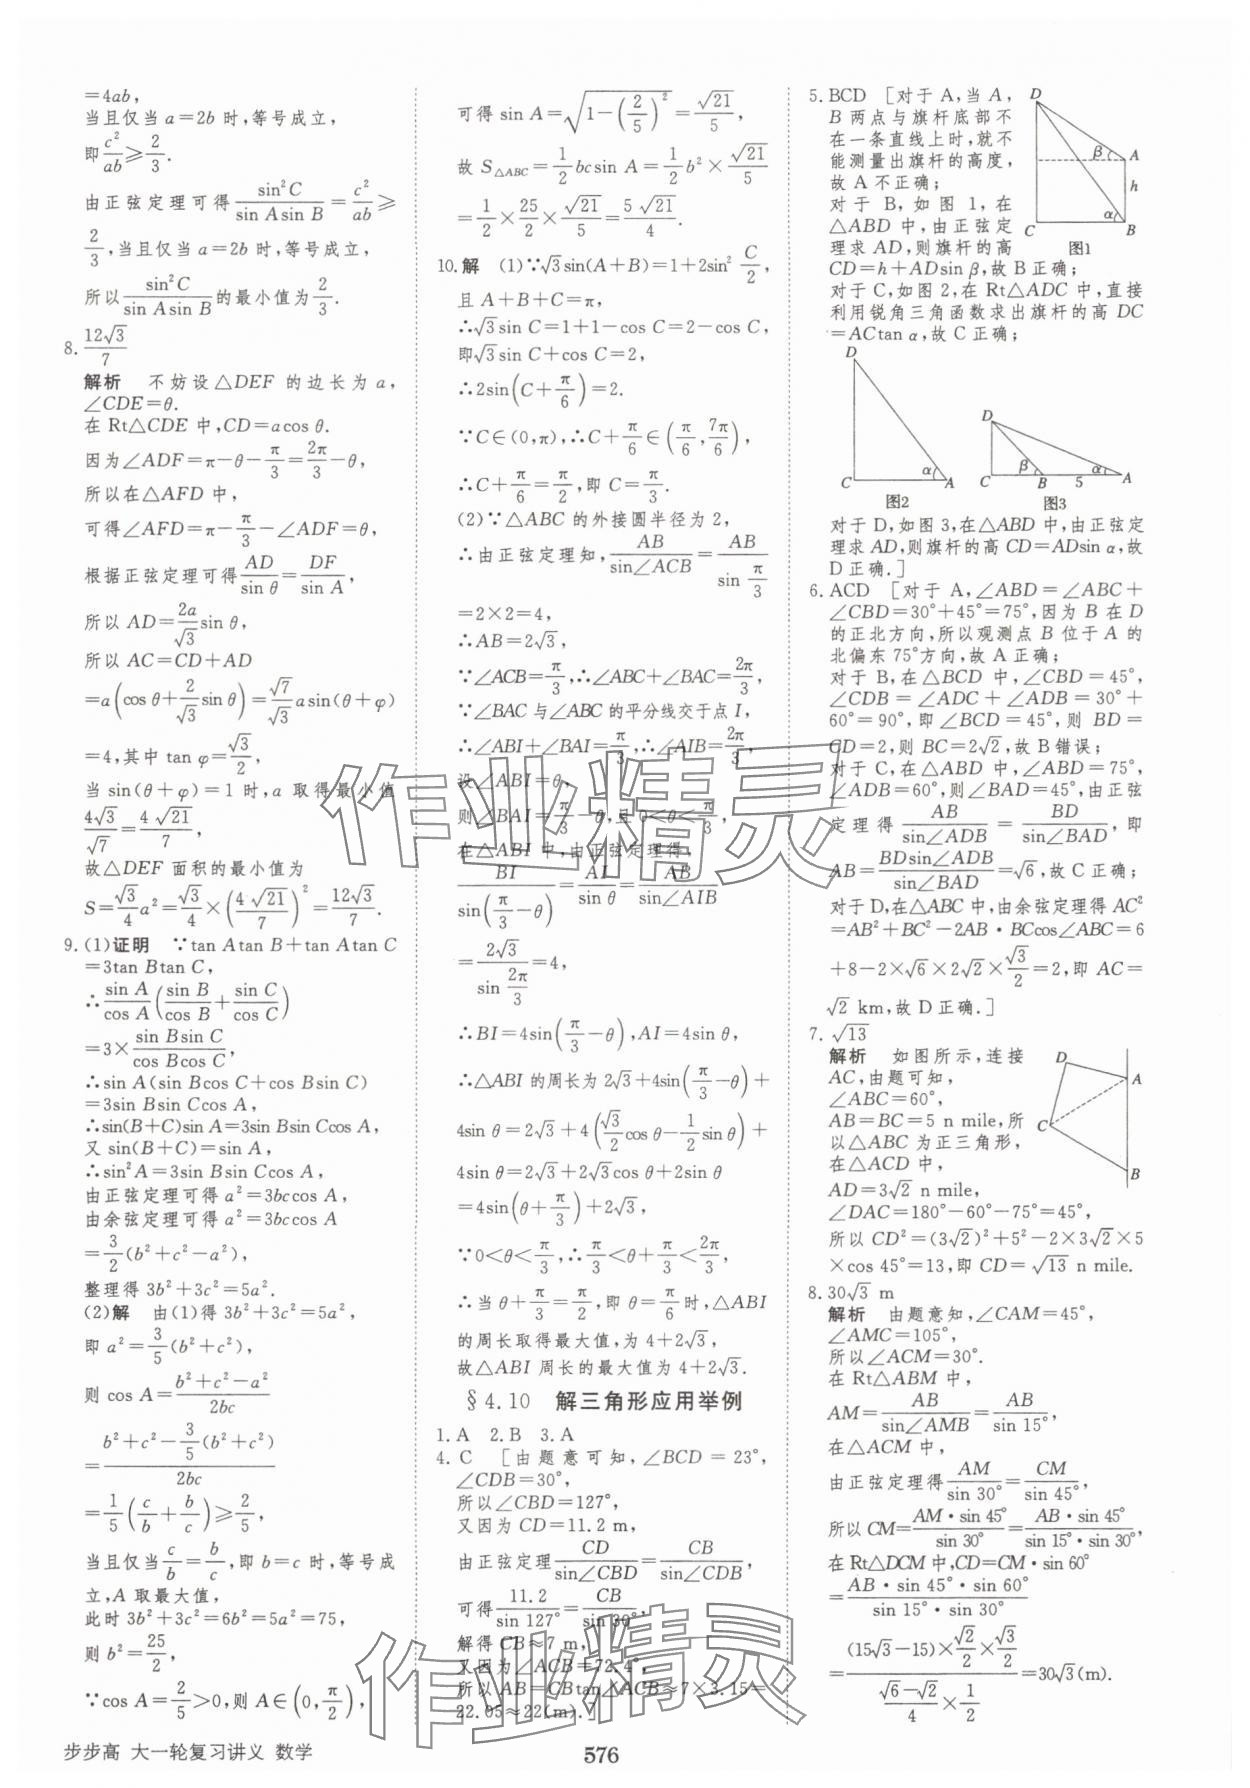 =4ab,
当且仅当 a=2b 时,等号成立,
即c²/ab≥2/3.
由正弦定理可得sin²C/(sin Asin B)=c²/ab≥
2/3,当且仅当 a=2b 时,等号成立,
所以sin²C/(sin Asin B)的最小值为2/3.
8. 12√3/7
解析 不妨设△DEF 的边长为 a,
∠CDE=θ.
在 Rt△CDE 中,CD=acos θ.
因为∠ADF=π-θ-π/3=2π/3-θ,
所以在△AFD 中,
可得∠AFD=π-π/3-∠ADF=θ,
根据正弦定理可得AD/sin θ=DF/sin A,
所以 AD=2a/√3 sin θ,
所以 AC=CD+AD
=a(cos θ+2/√3 sin θ)=√7/√3 asin(θ+φ)
=4,其中 tan φ=√3/2,
当 sin(θ+φ)=1 时,a 取得最小值
4√3/√7=4√21/7,
故△DEF 面积的最小值为
S=√3/4 a²=√3/4×(4√21/7)²=12√3/7.
9. (1)证明 ∵tan Atan B+tan Atan C
=3tan Btan C,
∴sin A/cos A(sin B/cos B+sin C/cos C)
=3×sin Bsin C/(cos Bcos C),
∴sin A(sin Bcos C+cos Bsin C)
=3sin Bsin Ccos A,
∴sin(B+C)sin A=3sin Bsin Ccos A,
又 sin(B+C)=sin A,
∴sin²A=3sin Bsin Ccos A,
由正弦定理可得 a²=3bccos A,
由余弦定理可得 a²=3bccos A
=3/2(b²+c²-a²),
整理得 3b²+3c²=5a².
(2)解 由(1)得 3b²+3c²=5a²,
即 a²=3/5(b²+c²),
则 cos A=(b²+c²-a²)/2bc
=(b²+c²-3/5(b²+c²))/2bc
=1/5(c/b+b/c)≥2/5,
当且仅当c/b=b/c,即 b=c 时,等号成
立,A 取最大值,
此时 3b²+3c²=6b²=5a²=75,
则 b²=25/2,
∵cos A=2/5>0,则 A∈(0,π/2),
可得 sin A=√(1-(2/5)²)=√21/5,
故 S△ABC=1/2 bcsin A=1/2 b²×√21/5
=1/2×25/2×√21/5=5√21/4.
10. 解 (1)∵√3sin(A+B)=1+2sin² C/2,
且 A+B+C=π,
∴√3sin C=1+1-cos C=2-cos C,
即√3sin C+cos C=2,
∴2sin(C+π/6)=2.
∵C∈(0,π),∴C+π/6∈(π/6,7π/6),
∴C+π/6=π/2,即 C=π/3.
(2)∵△ABC 的外接圆半径为 2,
∴由正弦定理知,AB/sin∠ACB=AB/sin π/3
=2×2=4,
∴AB=2√3,
∵∠ACB=π/3,∴∠ABC+∠BAC=2π/3,
∵∠BAC 与∠ABC 的平分线交于点 I,
∴∠ABI+∠BAI=π/3,∴∠AIB=2π/3,
设∠ABI=θ,
则∠BAI=π/3-θ,且 0<θ<π/3,
在△ABI 中,由正弦定理得,
BI/sin(π/3-θ)=AI/sin θ=AB/sin∠AIB
=2√3/sin 2π/3=4,
∴BI=4sin(π/3-θ),AI=4sin θ,
∴△ABI 的周长为 2√3+4sin(π/3-θ)+
4sin θ=2√3+4(√3/2 cos θ-1/2 sin θ)+
4sin θ=2√3+2√3cos θ+2sin θ
=4sin(θ+π/3)+2√3,
∵0<θ<π/3,∴π/3<θ+π/3<2π/3,
∴当 θ+π/3=π/2,即 θ=π/6时,△ABI
的周长取得最大值,为 4+2√3,
故△ABI 周长的最大值为 4+2√3.
§4.10 解三角形应用举例
1. A 2. B 3. A
4. C [由题意可知,∠BCD=23°,
∠CDB=30°,
所以∠CBD=127°,
又因为 CD=11.2 m,
由正弦定理CD/sin∠CBD=CB/sin∠CDB,
可得11.2/sin 127°=CB/sin 30°,
解得 CB≈7 m,
又因为∠ACB=72.4°,
所以 AB=CBtan∠ACB≈7×3.15=
22.05≈22(m).]
5. BCD [对于 A,当 A,
B 两点与旗杆底部不
在一条直线上时,就不
能测量出旗杆的高度,
故 A 不正确;
对于 B,如图 1,在
△ABD 中,由正弦定
理求 AD,则旗杆的高
CD=h+ADsin β,故 B 正确;
D
β
A
h
α
C
B
图1
对于 C,如图 2,在 Rt△ADC 中,直接
利用锐角三角函数求出旗杆的高 DC
=ACtan α,故 C 正确;
D
α
C
A
图2
D
β
α
C
B
5
A
图3
对于 D,如图 3,在△ABD 中,由正弦定
理求 AD,则旗杆的高 CD=ADsin α,故
D 正确.]
6. ACD [对于 A,∠ABD=∠ABC+
∠CBD=30°+45°=75°,因为 B 在 D
的正北方向,所以观测点 B 位于 A 的
北偏东 75°方向,故 A 正确;
对于 B,在△BCD 中,∠CBD=45°,
∠CDB=∠ADC+∠ADB=30°+
60°=90°,即∠BCD=45°,则 BD=
CD=2,则 BC=2√2,故 B 错误;
对于 C,在△ABD 中,∠ABD=75°,
∠ADB=60°,则∠BAD=45°,由正弦
定理得AB/sin∠ADB=BD/sin∠BAD,即
AB=BDsin∠ADB/sin∠BAD=√6,故 C 正确;
对于 D,在△ABC 中,由余弦定理得 AC²
=AB²+BC²-2AB·BCcos∠ABC=6
+8-2×√6×2√2×√3/2=2,即 AC=
√2 km,故 D 正确.]
7. √13
解析 如图所示,连接
AC,由题可知,
∠ABC=60°,
AB=BC=5 n mile,所
以△ABC 为正三角形,
在△ACD 中,
AD=3√2 n mile,
∠DAC=180°-60°-75°=45°,
D
A
C
B
所以 CD²=(3√2)²+5²-2×3√2×5
×cos 45°=13,即 CD=√13 n mile.
8. 30√3 m
解析 由题意知,∠CAM=45°,
∠AMC=105°,
所以∠ACM=30°.
在 Rt△ABM 中,
AM=AB/sin∠AMB=AB/sin 15°,
在△ACM 中,
由正弦定理得AM/sin 30°=CM/sin 45°,
所以 CM=AM·sin 45°/sin 30°=AB·sin 45°/(sin 15°·sin 30°),
在 Rt△DCM 中,CD=CM·sin 60°
=AB·sin 45°·sin 60°/(sin 15°·sin 30°)
=((15√3-15)×√2/2×√3/2)/((√6-√2)/4×1/2)=30√3(m).
步步高 大一轮复习讲义 数学
576
作业精灵
作业精灵